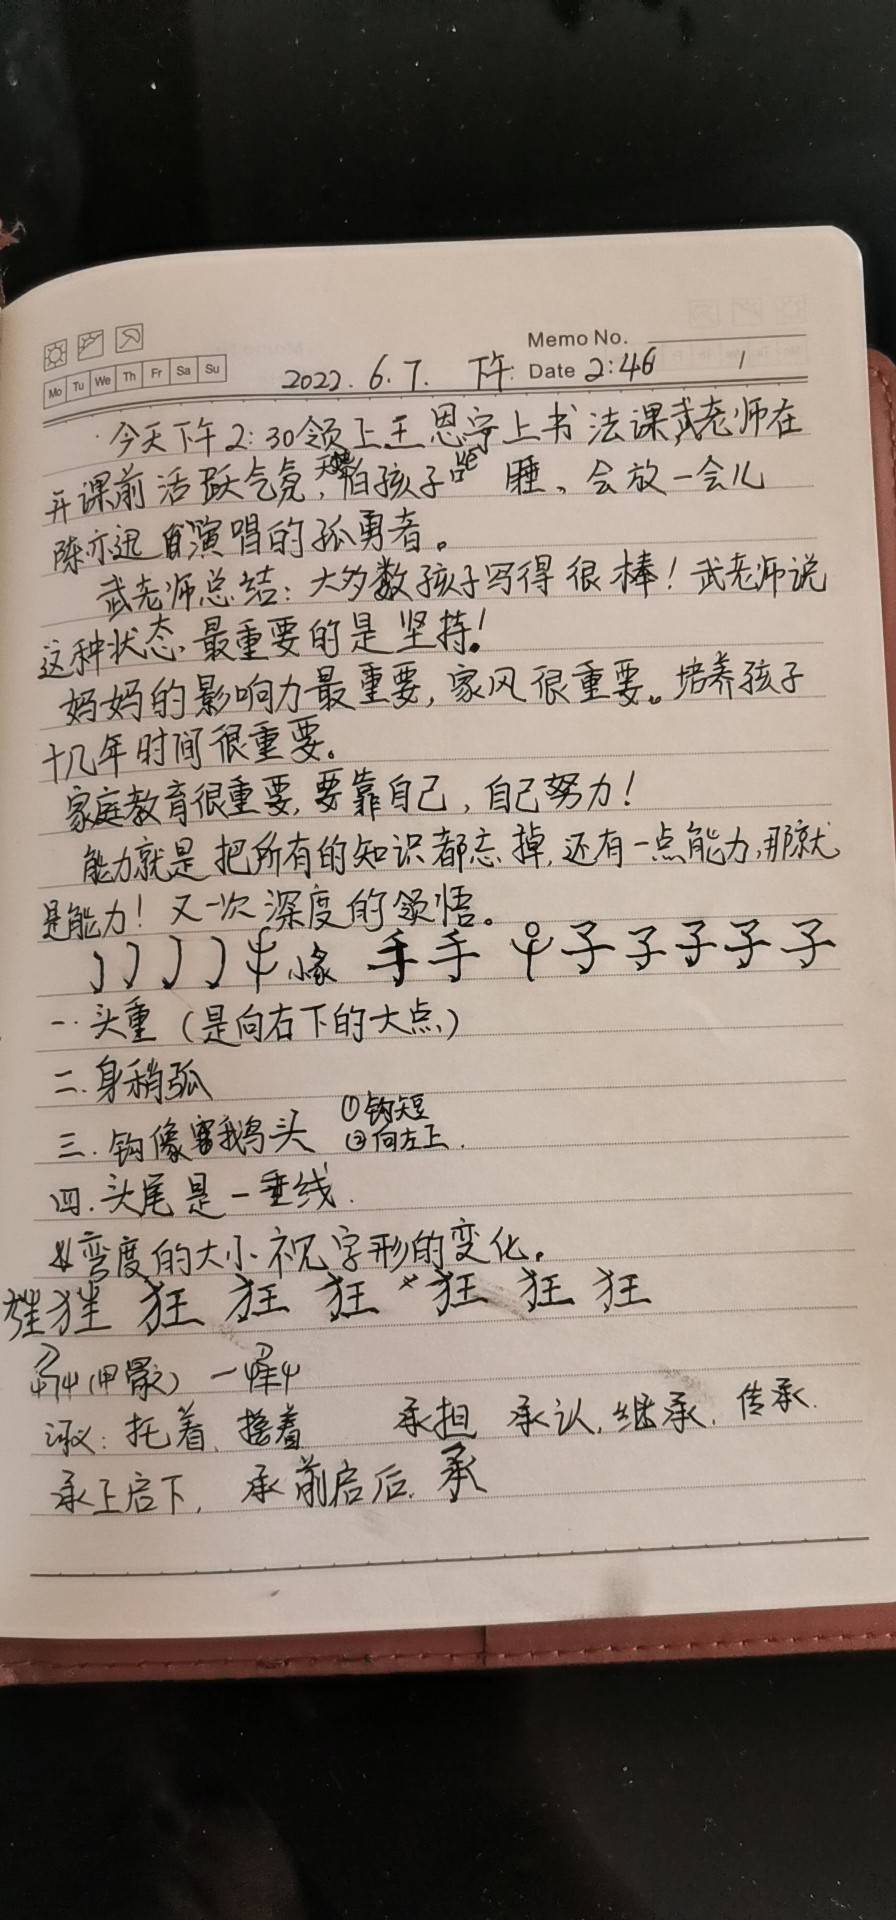 Memo No.
Mo Tu We Th Fr Sa Su
2022.6.7. 下午: Date 2:46 1
今天下午2:30领上王恩宇上书法课,武老师在
开课前活跃气氛,天热怕孩子睡、会放一会儿
陈亦迅演唱的孤勇者。
武老师总结:大多数孩子写得很棒!武老师说
这种状态、最重要的是坚持!
妈妈的影响力最重要,家风很重要。培养孩子
十几年时间很重要。
家庭教育很重要,要靠自己,自己努力!
能力就是把所有的知识都忘掉,还有一点能力,那就
是能力!又一次深度的领悟。
亅亅亅亅 像 手手 子子子子子
一.头重(是向右下的大点)
二.身稍弧
三.钩像鹅头 ①钩短
②向左上.
四.头尾是一垂线.
弯度的大小视字形的变化。
狂 狂 狂 狂 狂 狂
(甲骨文) 一
词义:托着、接着 承担 承认,继承.传承.
承上启下, 承前启后. 承